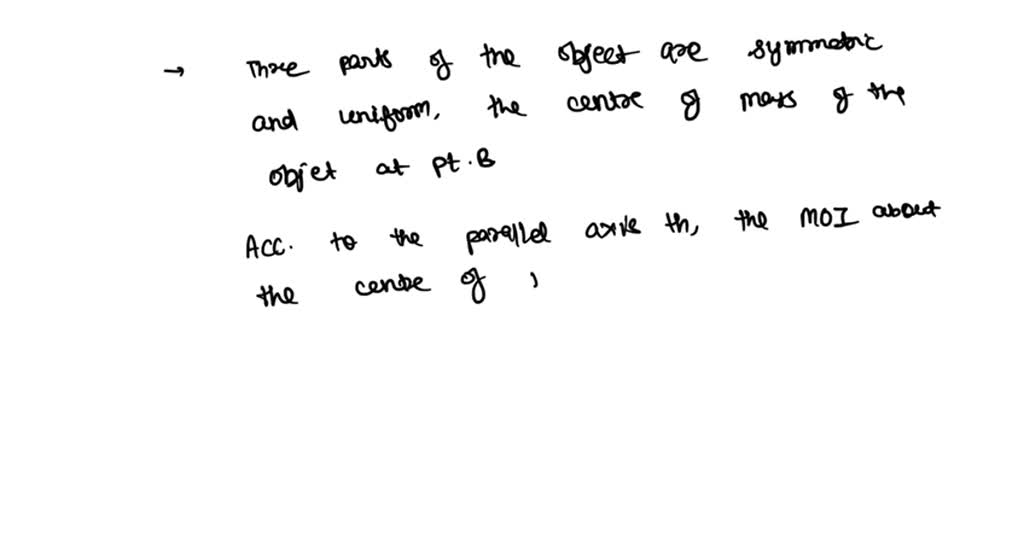 → Three parts of the object are symmetric
and uniform, the centre of mass of the
objet at pt. B
Acc. to the parallel axis th, the MOI about
the centre of